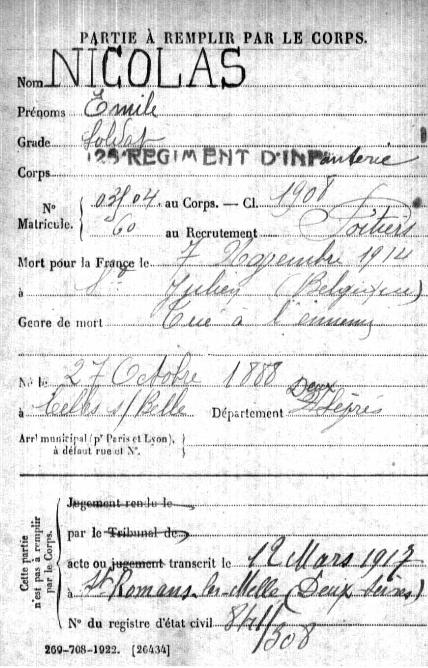 PARTIE À REMPLIR PAR LE CORPS.
Nom NICOLAS
Prénoms Emile
Grade Soldat
Corps 125 REGIMENT D'INFanterie
N° Matricule. { 03104 au Corps. — Cl. 1908
60 au Recrutement Poitiers
Mort pour la France le 7 Novembre 1914
à St Julien (Belgique)
Genre de mort Tué à l'ennemi
Né le 27 Octobre 1888
à Celles s/Belle Département Deux Sèvres
Arrt municipal (pr Paris et Lyon), }
à défaut rue et N°.
Cette partie n'est pas à remplir par le Corps.
Jugement rendu le
par le Tribunal de
acte ou jugement transcrit le 12 Mars 1917
à St Romans-les-Melle (Deux Sèvres)
N° du registre d'état civil
269-708-1922. [26434]